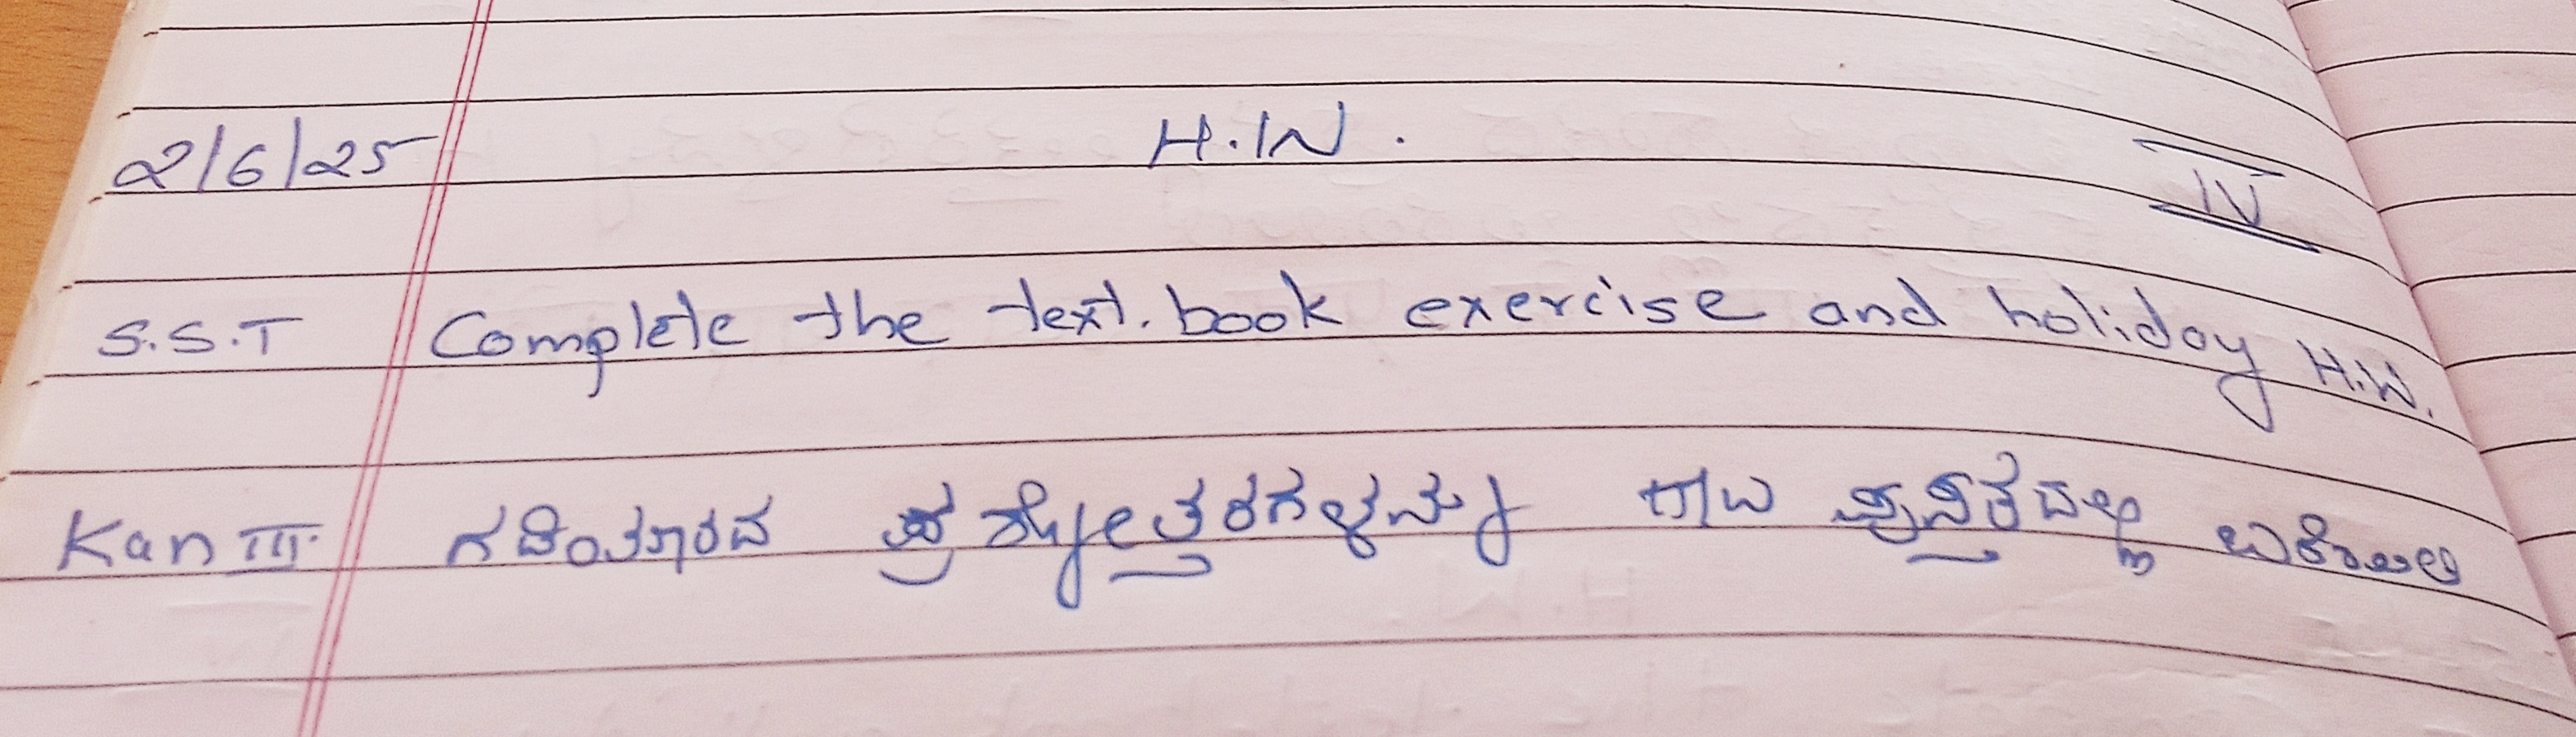 2/6/25 H.W. IV
S.S.T Complete the text.book exercise and holiday H.W.
Kan III ಗಡಿಯಾರದ ಪ್ರಶ್ನೋತ್ತರಗಳನ್ನು ಪಾಠ ಪುಸ್ತಕದಲ್ಲಿ ಬರೆಯಿರಿ